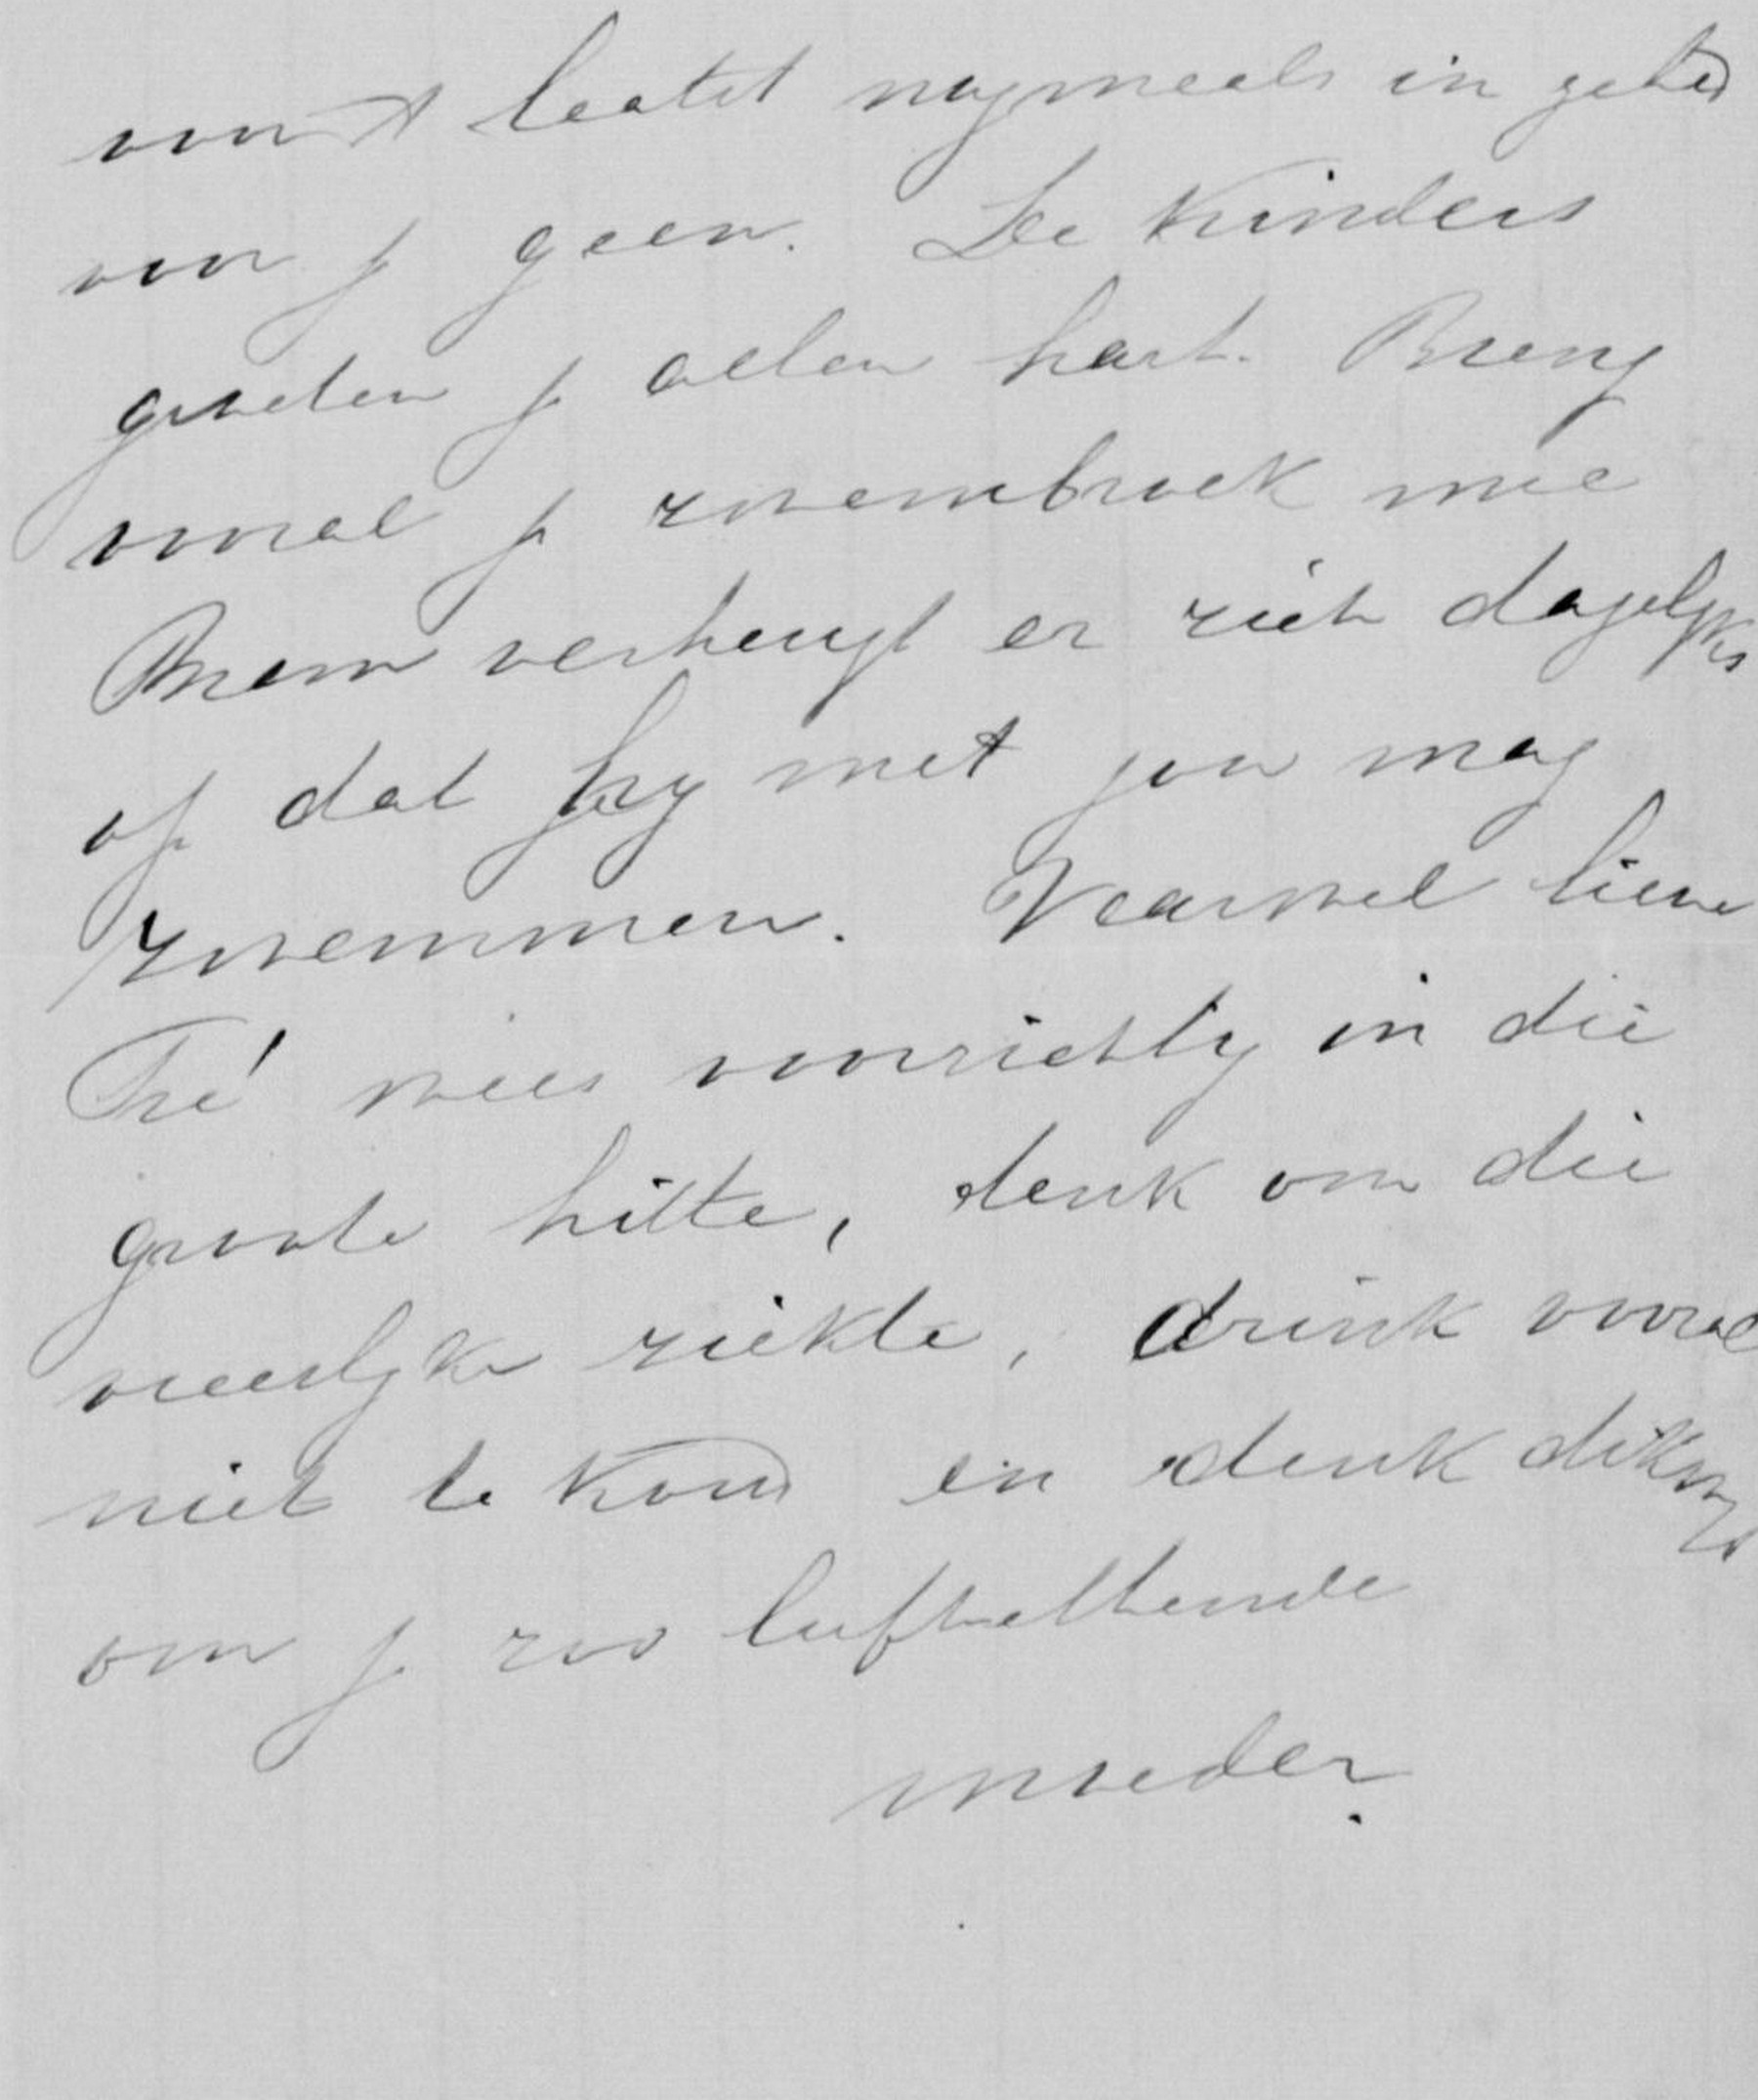 voor 't laatst nogmaals in gebed
voor je geen. De kinders
groeten je allen hart. Breng
vooral je zwembroek mee
Bram verheugt er zich dagelijks
op dat hij met jou mag
zwemmen. Vaarwel lieve
Tré wees voorzichtig in die
groote hitte, denk om die
vreeslijke ziekte, drink vooral
niet te koud en denk dikwijls
om je zoo liefhebbende
moeder.